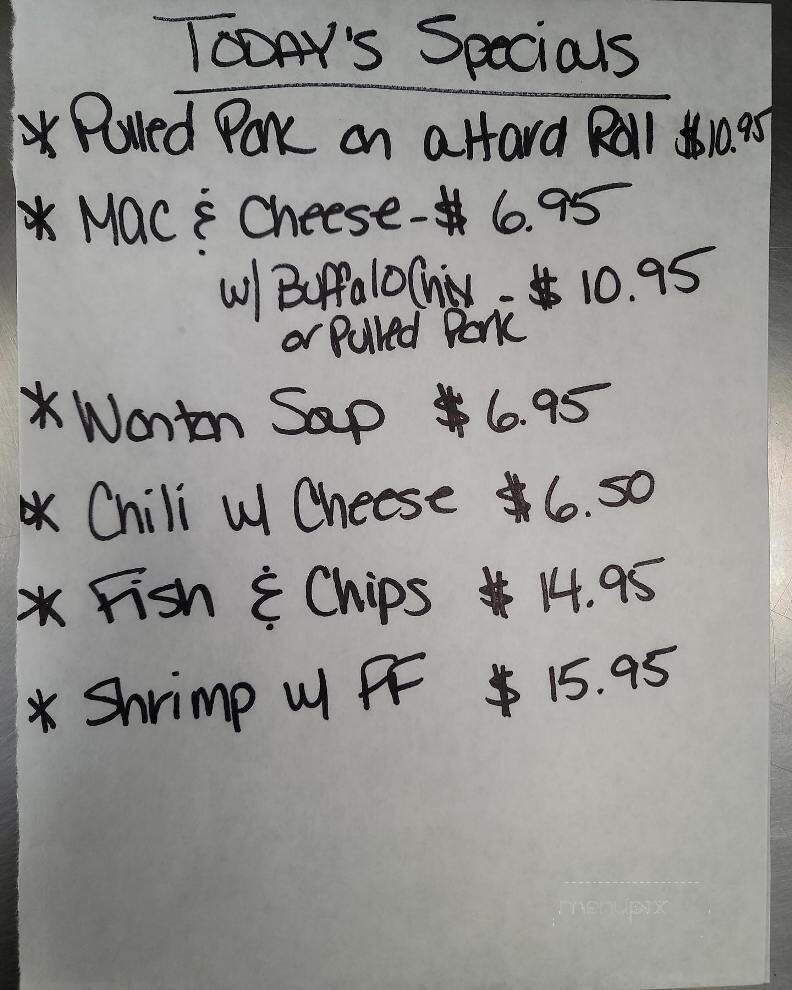 TODAY'S Specials
* Pulled Pork on a Hard Roll $10.95
* Mac & Cheese - $ 6.95
w/ Buffalo Chix - $ 10.95
or Pulled Pork
* Wonton Soup $ 6.95
* Chili w/ Cheese $ 6.50
* Fish & Chips $ 14.95
* Shrimp w/ FF $ 15.95
menupix